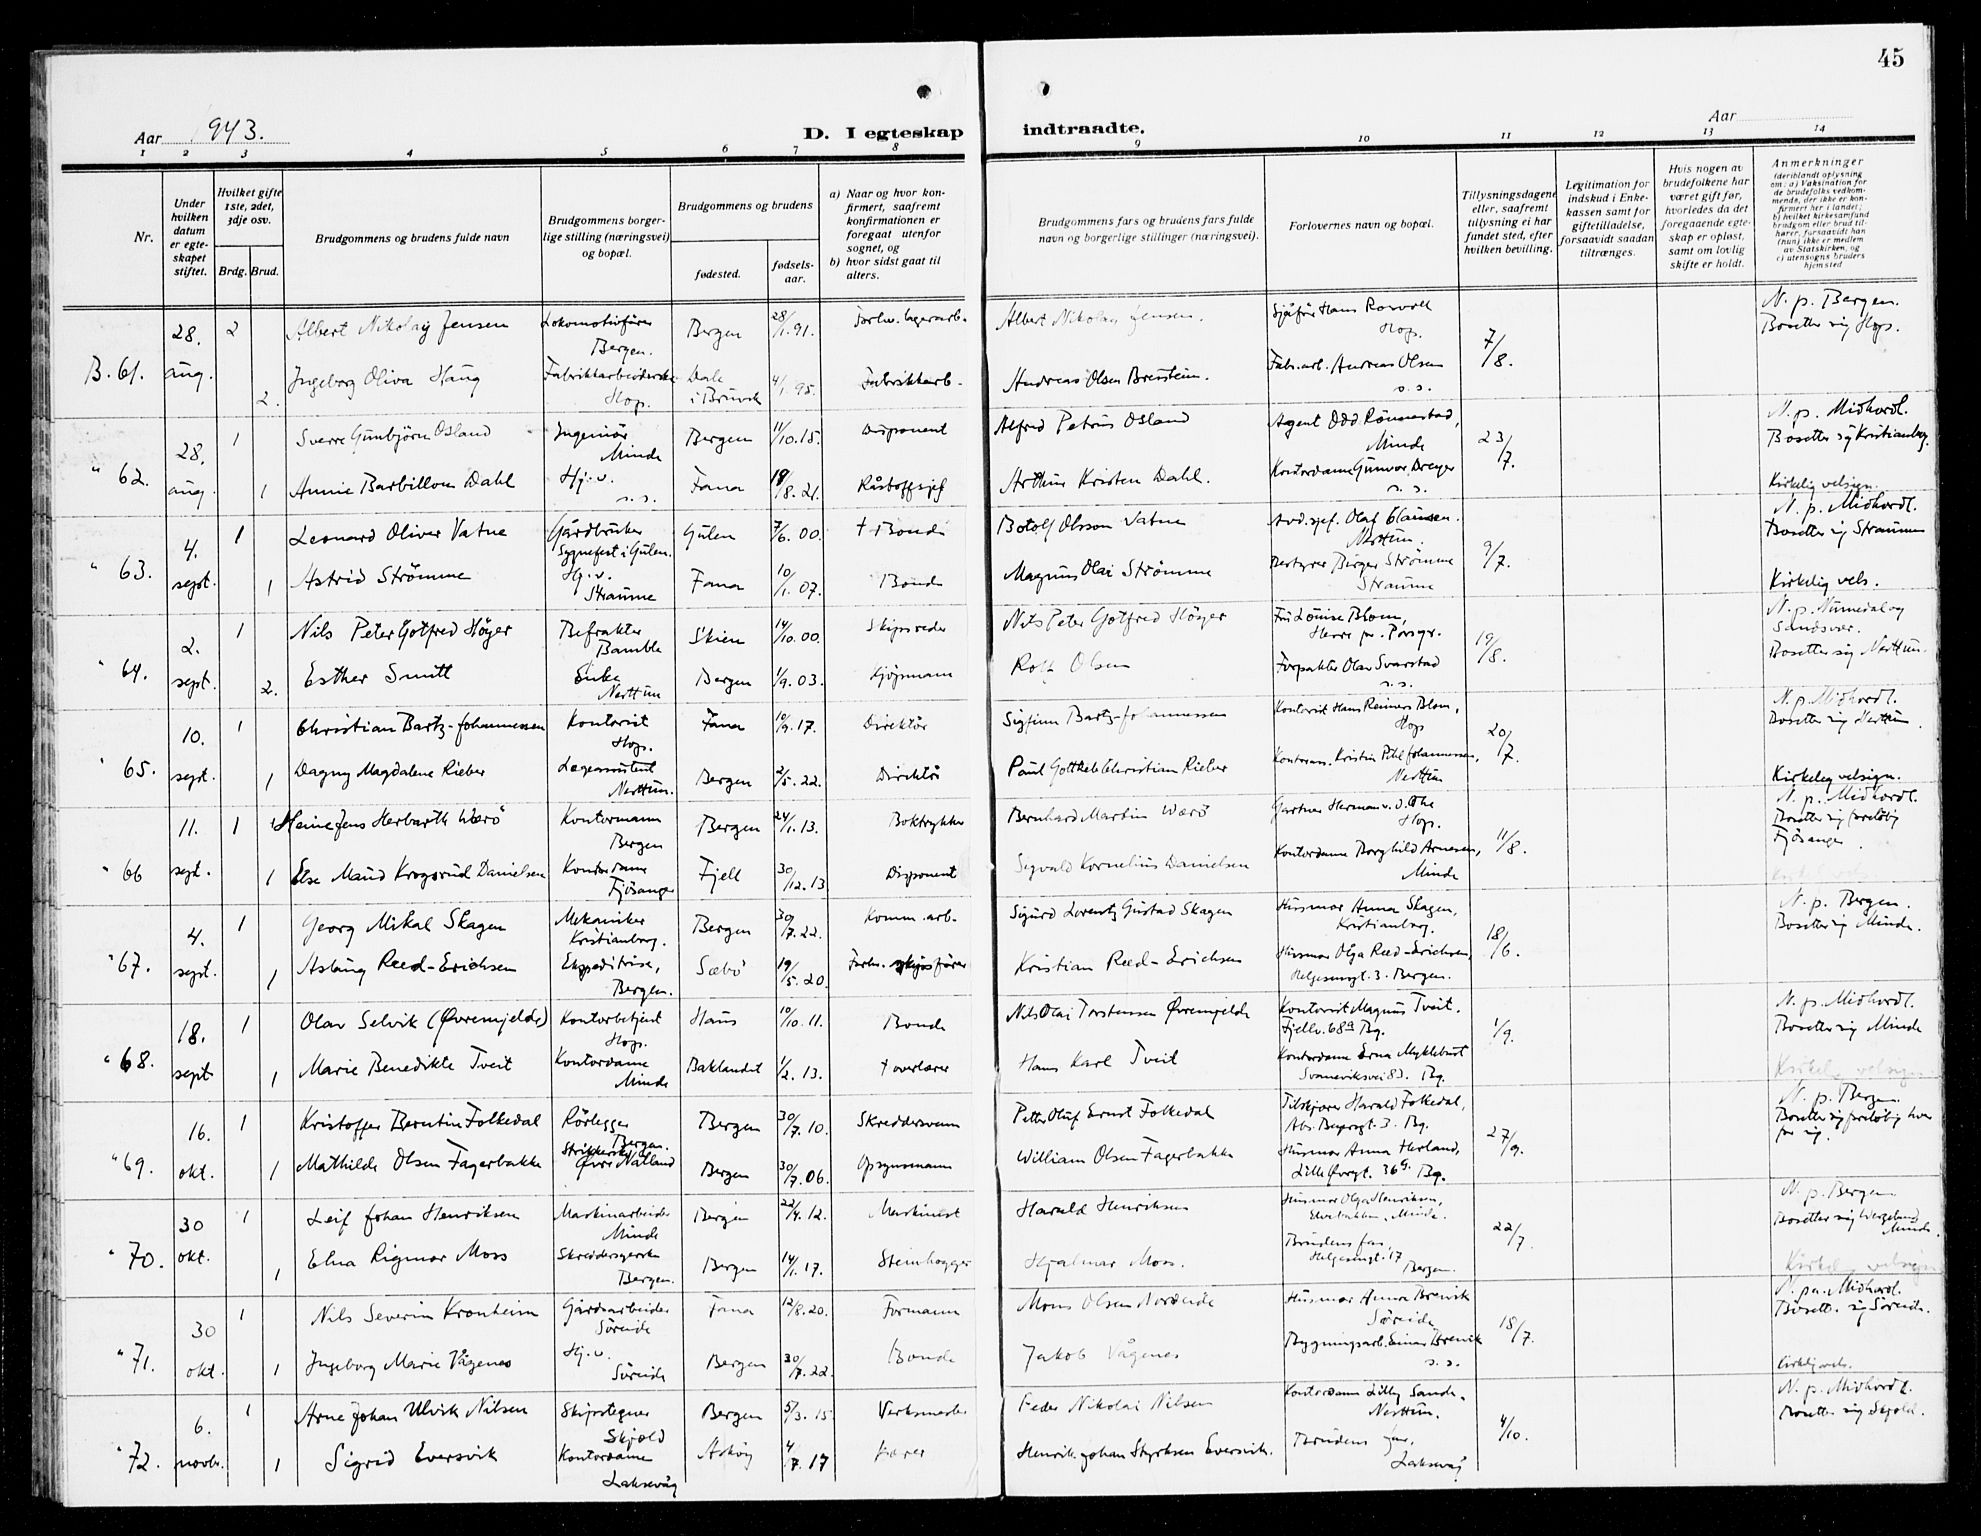 45
Aar 1943.
D. I egteskap indtraadte.
Aar
1 2 3 4 5 6 7 8 9 10 11 12 13 14
Nr.
Under hvilken datum er egteskapet stiftet.
Hvilket gifte 1ste, 2det, 3dje osv.
Brdg. Brud.
Brudgommens og brudens fulde navn
Brudgommens borgerlige stilling (næringsvei) og bopæl.
Brudgommens og brudens
fødested.
fødselsaar.
a) Naar og hvor konfirmert, saafremt konfirmationen er foregaat utenfor sognet, og
b) hvor sidst gaat til alters.
Brudgommens fars og brudens fars fulde navn og borgerlige stillinger (næringsvei).
Forlovernes navn og bopæl.
Tillysningsdagene eller, saafremt tillysning ei har fundet sted, efter hvilken bevilling.
Legitimation for indskud i Enkekassen samt for giftetilladelse, forsaavidt saadan tiltrænges.
Hvis nogen av brudefolkene har været gift før, hvorledes da det foregaaende egteskap er opløst, samt om lovlig skifte er holdt.
Anmerkninger
(deriblandt oplysning om: a) Vaksination for de brudefolks vedkommende, der ikke er konfirmert her i landet; b) hvilket kirkesamfund brudgom eller brud tilhører, forsaavidt han (hun) ikke er medlem av Statskirken, og c) utensogns bruders hjemsted
B. 61. 28. aug. 2 Albert Nikolay Jensen Lokomotivfører Bergen. Bergen 28/1. 91. Forhv. lagerarb. Albert Nikolay Jensen. Sjåfør Hans Rosvoll Hop. 7/8. N. p. Bergen. Bosetter sig Hop.
2. Ingeborg Oliva Haug Fabrikkarbeiderske Hop. Dale i Bruvik 4/1. 95. Fabrikkarb. Andreas Olsen Breistein. Fabr.arb. Andreas Olsen s.s.
" 62. 28. aug. 1 Sverre Gunbjørn Osland Ingeniør Minde Bergen 11/10. 15. Disponent Alfred Petrus Osland Agent Odd Rønnestad, Minde 23/7. N. p. Midhordl. Bosetter sig Kristianborg.
1 Annie Barbillou Dahl Hj. v. s.s. Fana 19/8. 21. Råstoffsjef Arthur Kristen Dahl. Kontordame Gunvor Dreyer s.s. Kirkelig velsign.
" 63. 4. sept. 1 Leonard Oliver Vatne Gårdbruker Sygnefest i Gulen. Gulen 7/6. 00. † Bonde Botolf Olsson Vatne Avd.sjef. Olaf Clausen. Nesttun. 9/7. N. p. Midhordl. Bosetter sig Straumme
1 Astrid Strømme Hj. v. Straume Fana 10/1. 07. Bonde Magnus Olai Strømme Bestyrer Birger Strømme Straume Kirkelig vels.
" 64. 2. sept. 1 Nils Peter Gotfred Høyer Befrakter Bamble Skien 14/10. 00. Skipsreder Nils Peter Gotfred Höyer Fru Louise Blom, Herre pr. Porsgr. 19/8. N. p. Numedal og Sandsvær. Bosetter sig Nesttun.
2. Esther Smitt Enke Nesttun Bergen 1/9. 03. Kjøpmann Rolf Olsen Forpakter Olav Svarstad s.s.
" 65. 10. sept. 1 Christian Bartz-Johannessen Kontorist Hop. Fana 10/9. 17. Direktør Sigfinn Bartz-Johannessen Kontorist Hans Reimers Blom, Hop 20/7. N. p. Midhordl. Bosetter sig Nesttun.
1 Dagny Magdalene Rieber Legeassistent Nesttun. Bergen 2/5. 22. Direktør Paul Gottlieb Christian Rieber Kontorass. Kristin Pihl Johannessen, Nesttun Kirkeleg velsign.
" 66 11. sept. 1 Heine Jens Herbarth Wærø Kontormann Bergen Bergen 24/1. 13. Boktrykker Bernhard Martin Wærø Gartner Herman v. d. Ohe Hop. 11/8. N. p. Midhordl. Bosetter sig foreløbig Fjøsanger.
1 Else Maud Krogsrud Danielsen Kontordame Fjøsanger Fjell 30/12. 13 Disponent Sigvald Kornelius Danielsen Kontordame Borghild Arnesen, Minde
" 67. 4. sept. 1 Georg Mikal Skagen Mekaniker Kristianborg. Bergen 30/7. 22. Komm. arb. Sigurd Lorentz Gustad Skagen Husmor Anna Skagen, Kristianborg. 18/6. N. p. Bergen. Bosetter sig Minde.
1 Aslaug Reed-Erichsen Ekspeditrise, Bergen. Sæbø 19/5. 20. Forhv. skipsfører Kristian Reed-Erichsen Husmor Olga Reed-Erichsen, Helgesensgt. 3. Bergen.
" 68. 18. sept 1 Olav Selvik (Øvremjelde) Kontorbetjent Hop. Haus 10/10. 11. Bonde Nils Olai Torstensen Øvremjelde Kontorist Magnus Tveit. Fjellv. 68a Bg. 1/9. N. p. Midhordl. Bosetter sig Minde
1 Marie Benedikte Tveit Kontordame Minde Baklandet 1/2. 13. † overlærer Hans Karl Tveit Kontordame Erna Myklebust Svaneviksvei 83. Bg. Kirkelig velsign.
" 69. 16. okt. 1 Kristoffer Berntin Folkedal Rørlegger Bergen. Bergen 30/7. 10. Skreddersvenn Petter Oluf Ernst Folkedal Tilskjærer Harald Folkedal, Abs. Beyersgt. 3. Bg. 27/9. N. p. Bergen. Bosetter sig foreløbig hver for sig.
1 Mathilde Olsen Fagerbakke Strikkerske Øvre Natland Bergen 30/7. 06. Opsynsmann William Olsen Fagerbakke Husmor Anna Herland, Lille Øvregt. 36a. Bg.
" 70. 30 okt. 1 Leif Johan Henriksen Maskinarbeider Minde Bergen 22/4. 12. Maskinist Harald Henriksen Husmor Olga Henriksen, Elvebakken, Minde. 22/7. N. p. Bergen Bosetter sig Wergeland Minde.
1 Elna Rigmor Moss Skreddersyerske Bergen. Bergen 14/1. 17. Steinhogger Hjalmar Moss. Brudens far Helgesensgt. 17 Bergen. Kirkelig velsign
" 71. 30 okt. 1 Nils Severin Kronheim Gårdsarbeider Søreide Fana 12/8. 20. Formann Mons Olsen Nordeide Husmor Anna Brenvik Søreide 18/7. N. p. Midhordl. Bosett. sig Søreide.
1 Ingeborg Marie Vågenes Hj. v. Søreide Bergen 30/7. 22. Bonde Jakob Vågenes Bygningsarb. Einar Brenvik s.s. Kirkelig vels.
" 72. 6. novbr. 1 Arne Johan Ulvik Nilsen Skipstegner Skjold Bergen 5/3. 15 Verksmester Peder Nikolai Nilsen Kontordame Lilly Sande. Nesttun. 4/10. N. p. Midhordl. Bosetter sig Skjold.
1 Sigrid Eversvik Kontordame Laksevåg Askøy 4/7. 17 Lærer Henrik Johan Styrksen Eversvik. Brudens far, Laksevåg